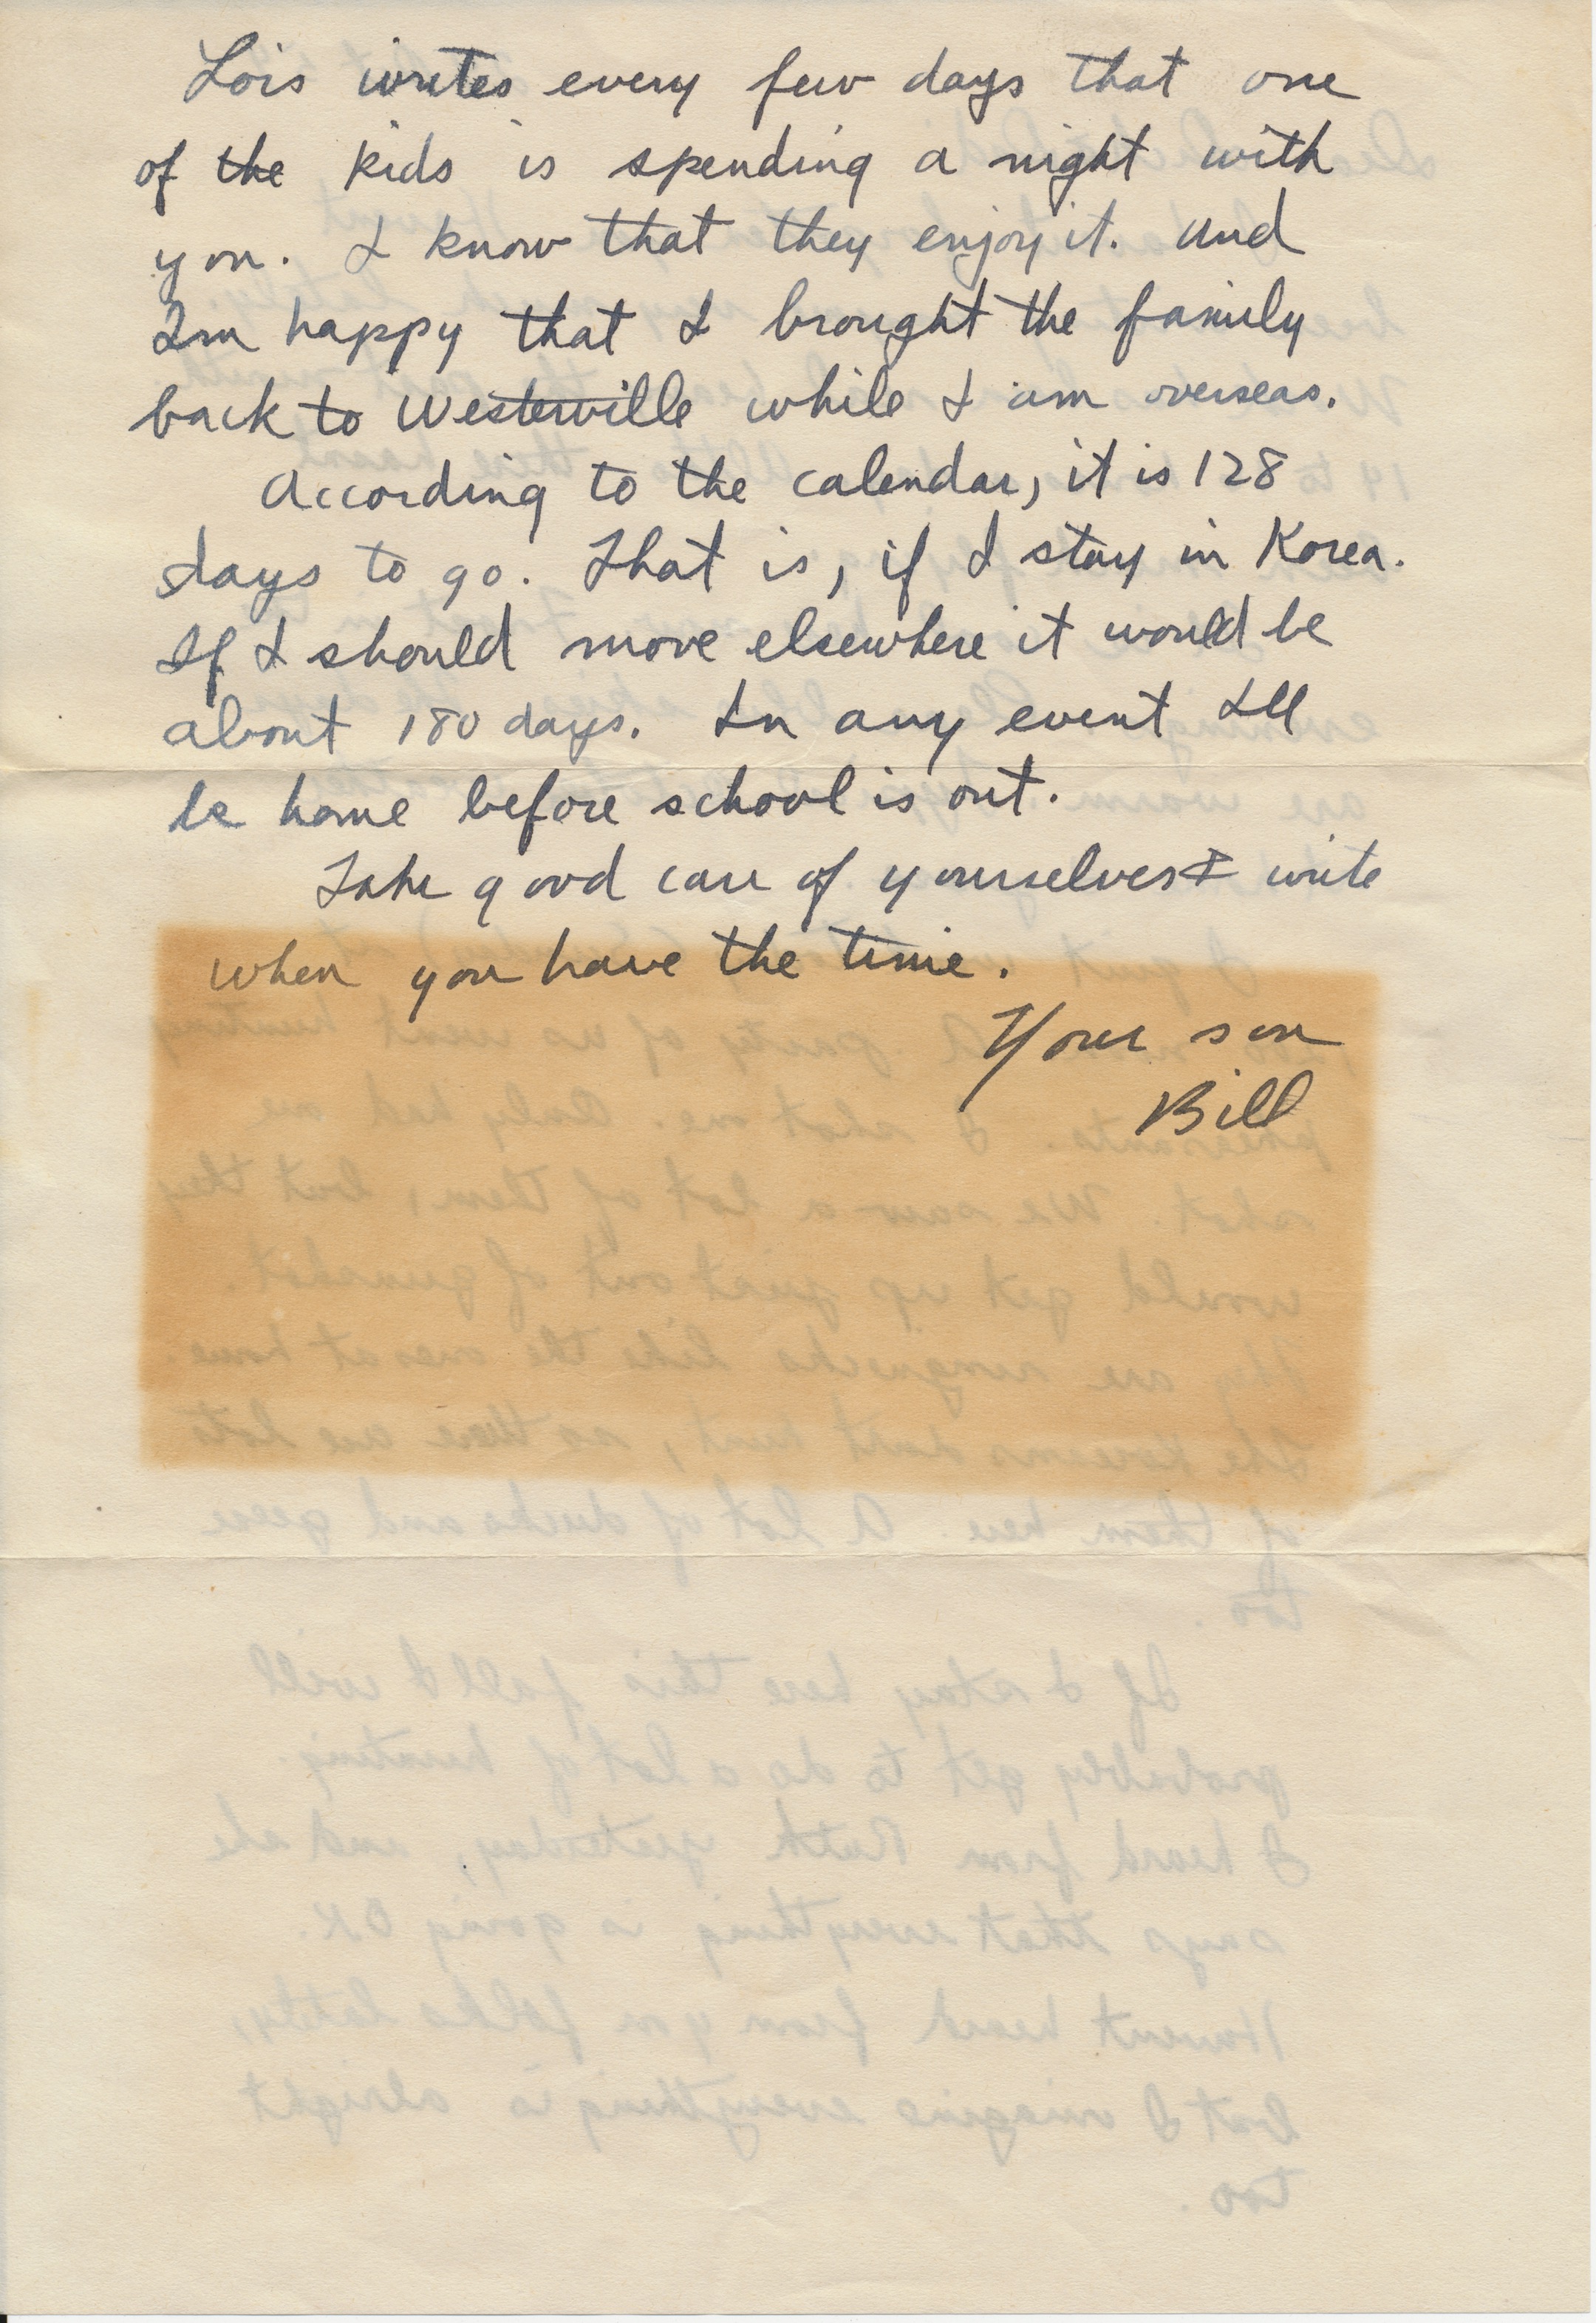 Lois writes every few days that one
of the kids is spending a night with
you. I know that they enjoy it. And
Im happy that I brought the family
back to Westerville while I am overseas.
According to the calendar, it is 128
days to go. That is, if I stay in Korea.
If I should move elsewhere it would be
about 180 days. In any event Ill
be home before school is out.
Take good care of yourselves & write
when you have the time.
Your son
Bill